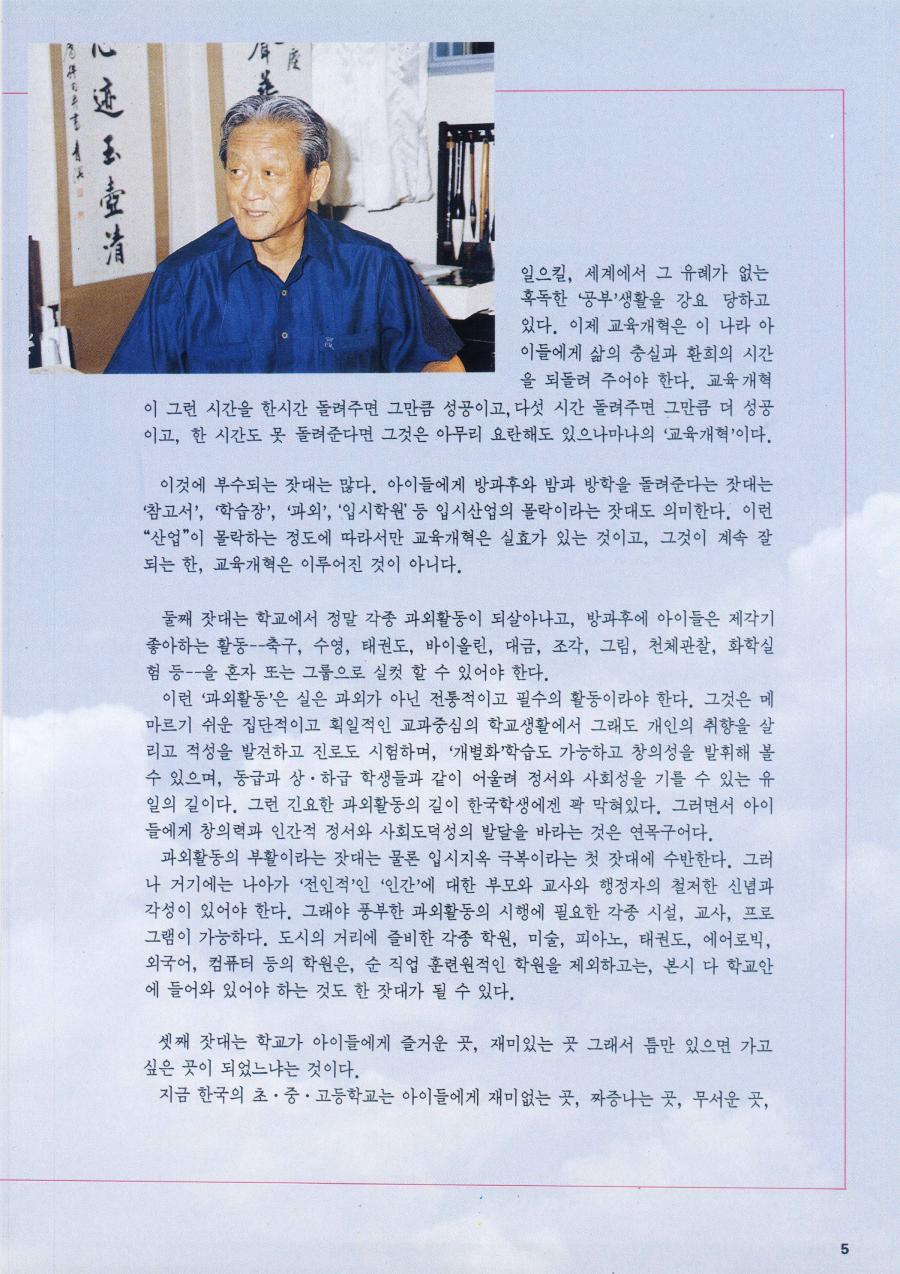 心迹玉壺清
일으킬, 세계에서 그 유례가 없는
혹독한 '공부'생활을 강요 당하고
있다. 이제 교육개혁은 이 나라 아
이들에게 삶의 충실과 환희의 시간
을 되돌려 주어야 한다. 교육개혁
이 그런 시간을 한시간 돌려주면 그만큼 성공이고, 다섯 시간 돌려주면 그만큼 더 성공
이고, 한 시간도 못 돌려준다면 그것은 아무리 요란해도 있으나마나의 '교육개혁'이다.
이것에 부수되는 잣대는 많다. 아이들에게 방과후와 밤과 방학을 돌려준다는 잣대는
'참고서', '학습장', '과외', '입시학원' 등 입시산업의 몰락이라는 잣대도 의미한다. 이런
“산업”이 몰락하는 정도에 따라서만 교육개혁은 실효가 있는 것이고, 그것이 계속 잘
되는 한, 교육개혁은 이루어진 것이 아니다.
둘째 잣대는 학교에서 정말 각종 과외활동이 되살아나고, 방과후에 아이들은 제각기
좋아하는 활동--축구, 수영, 태권도, 바이올린, 대금, 조각, 그림, 천체관찰, 화학실
험 등--을 혼자 또는 그룹으로 실컷 할 수 있어야 한다.
이런 '과외활동'은 실은 과외가 아닌 전통적이고 필수의 활동이라야 한다. 그것은 메
마르기 쉬운 집단적이고 획일적인 교과중심의 학교생활에서 그래도 개인의 취향을 살
리고 적성을 발견하고 진로도 시험하며, '개별화'학습도 가능하고 창의성을 발휘해 볼
수 있으며, 동급과 상·하급 학생들과 같이 어울려 정서와 사회성을 기를 수 있는 유
일의 길이다. 그런 긴요한 과외활동의 길이 한국학생에겐 꽉 막혀있다. 그러면서 아이
들에게 창의력과 인간적 정서와 사회도덕성의 발달을 바라는 것은 연목구어다.
과외활동의 부활이라는 잣대는 물론 입시지옥 극복이라는 첫 잣대에 수반한다. 그러
나 거기에는 나아가 '전인적'인 '인간'에 대한 부모와 교사와 행정자의 철저한 신념과
각성이 있어야 한다. 그래야 풍부한 과외활동의 시행에 필요한 각종 시설, 교사, 프로
그램이 가능하다. 도시의 거리에 즐비한 각종 학원, 미술, 피아노, 태권도, 에어로빅,
외국어, 컴퓨터 등의 학원은, 순 직업 훈련원적인 학원을 제외하고는, 본시 다 학교안
에 들어와 있어야 하는 것도 한 잣대가 될 수 있다.
셋째 잣대는 학교가 아이들에게 즐거운 곳, 재미있는 곳 그래서 틈만 있으면 가고
싶은 곳이 되었느냐는 것이다.
지금 한국의 초·중·고등학교는 아이들에게 재미없는 곳, 짜증나는 곳, 무서운 곳,
5